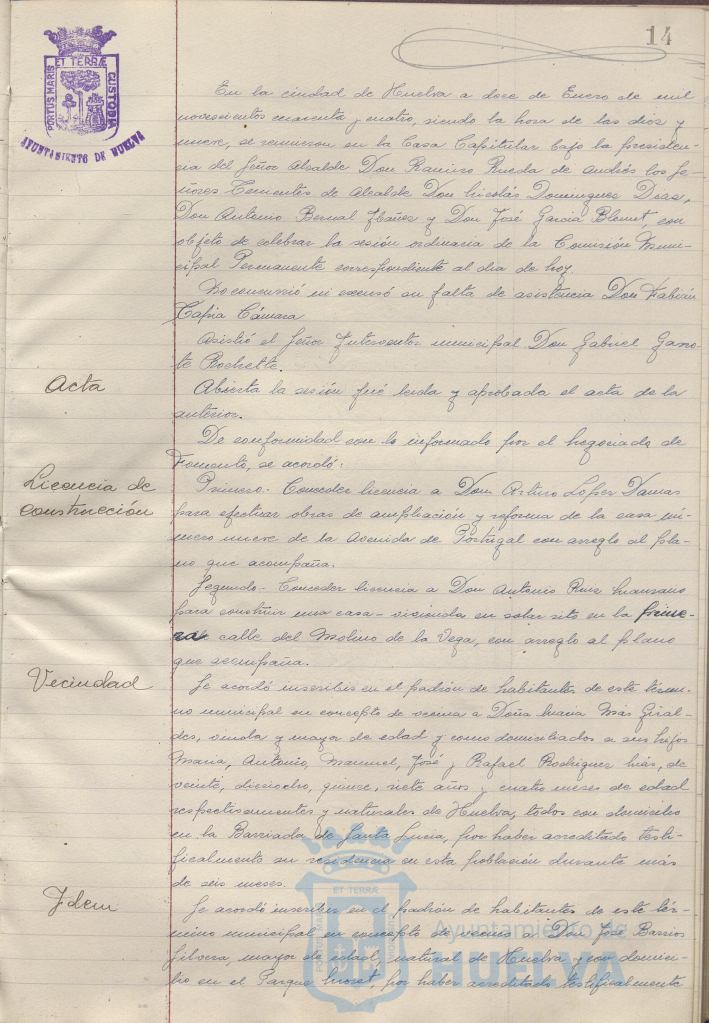 14
PORTUS MARIS ET TERRÆ CUSTODIA
AYUNTAMIENTO DE HUELVA
En la ciudad de Huelva a doce de Enero de mil
novecientos cuarenta y cuatro, siendo la hora de las diez y
nueve, se reunieron en la Casa Capitular bajo la presiden-
cia del Señor Alcalde Don Ramiro Rueda de Andrés los Se-
ñores Tenientes de Alcalde Don Nicolás Dominguez Diaz,
Don Antonio Bernal Ibañez y Don José Garcia, con
objeto de celebrar la sesión ordinaria de la Comisión Muni-
cipal Permanente correspondiente al dia de hoy.
No concurrió ni excusó su falta de asistencia Don Fabián
Tapia Cámara
Asistió el Señor Interventor municipal Don Gabriel
Acta
Abierta la sesión fué leida y aprobada el acta de la
anterior.
De conformidad con lo informado por el Negociado de
Fomento, se acordó:
Licencia de
construcción
Primero- Conceder licencia a Don Arturo Lopez Damas
para efectuar obras de ampliación y reforma de la casa nú-
mero nueve de la Avenida de Portugal con arreglo al pla-
no que acompaña.
Segundo- Conceder licencia a Don Antonio Ruiz Manzano
para construir una casa-vivienda en solar sito en la prime-
ra calle del Molino de la Vega, con arreglo al plano
que acompaña.
Vecindad
Se acordó inscribir en el padrón de habitantes de este térmi-
no municipal en concepto de vecina a Doña Maria Mas Giral-
des, viuda y mayor de edad y como domiciliados a sus hijos
Maria, Antonio, Manuel, José y Rafael Rodriguez Mas, de
veinte, dieciocho, quince, siete años y cuatro meses de edad
respectivamente y naturales de Huelva, todos con domicilio
en la Barriada de Santa Lucia, por haber acreditado testi-
ficalmente su residencia en esta población durante más
de seis meses.
Idem
Se acordó inscribir en el padrón de habitantes de este tér-
mino municipal en concepto de vecino a Don José Barrios
Silvera, mayor de edad, natural de Huelva y con domici-
lio en el Parque, por haber acreditado testificalmente
PORTUS MARIS ET TERRÆ CUSTODIA
Ayuntamiento de
HUELVA